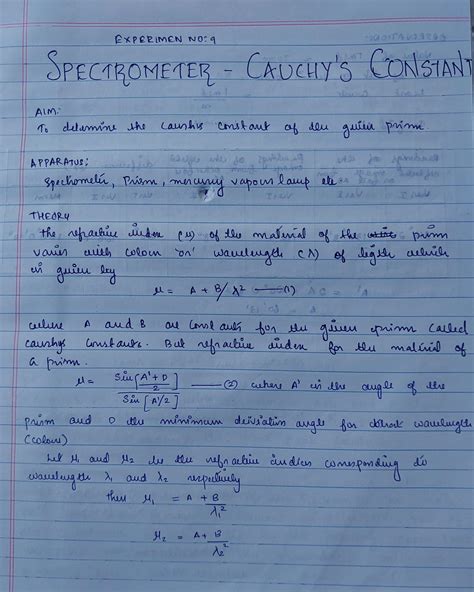 EXPERIMEN NO:9
SPECTROMETER - CAUCHY'S CONSTANT
AIM:
To determine the caushys constant of the given prism.
APPARATUS:
Spectrometer, Prism, mercury vapour lamp etc
THEORY
the refractive index (μ) of the material of the prism
varies with colour 'or' wavelength (λ) of ligth which
is given by
μ = A + B/λ² —(1)
where A and B are constants for the given prism called
caushys constants. But refractive index for the material of
a prism.
μ = Sin[A'+D/2] / Sin[A/2] —(2) where A' is the angle of the
prism and D the minimum deviation angle for that wavelength
(colour)
Let μ1 and μ2 be the refractive indices corresponding to
wavelength λ1 and λ2 respectively
then μ1 = A + B/λ1²
μ2 = A + B/λ2²